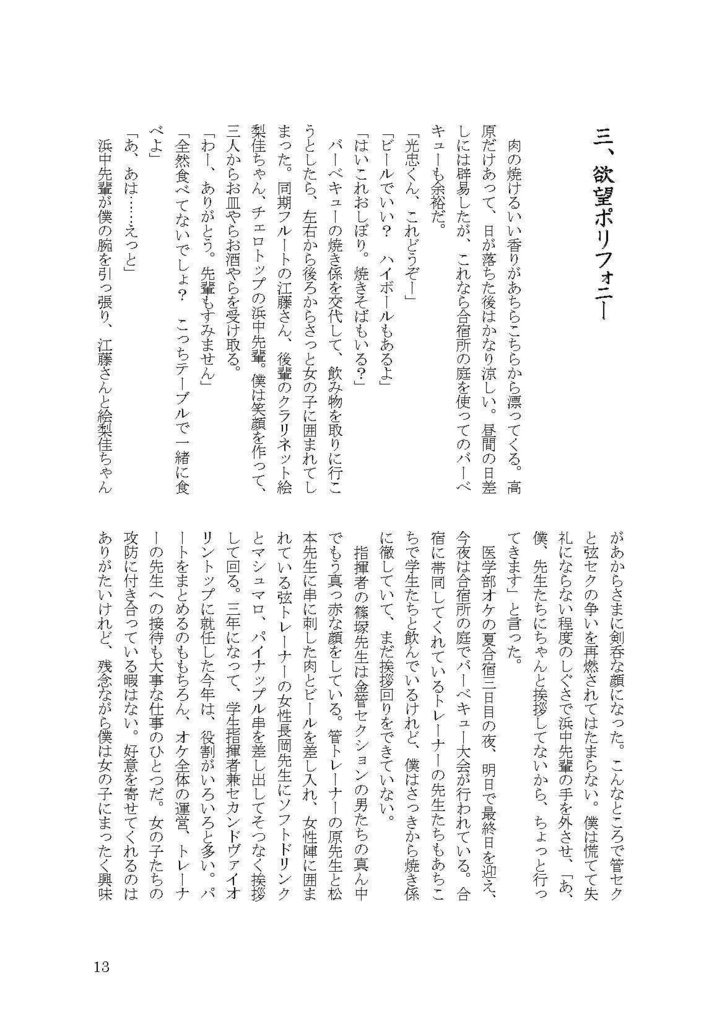 三、欲望ポリフォニー
　肉の焼けるいい香りがあちらこちらから漂ってくる。高
原だけあって、日が落ちた後はかなり涼しい。昼間の日差
しには辟易したが、これなら合宿所の庭を使ってのバーベ
キューも余裕だ。
「光忠くん、これどうぞー」
「ビールでいい？　ハイボールもあるよ」
「はいこれおしぼり。焼きそばもいる？」
　バーベキューの焼き係を交代して、飲み物を取りに行こ
うとしたら、左右から後ろからさっと女の子に囲まれてし
まった。同期フルートの江藤さん、後輩のクラリネット絵
梨佳ちゃん、チェロトップの浜中先輩。僕は笑顔を作って、
三人からお皿やらお酒やらを受け取る。
「わー、ありがとう。先輩もすみません」
「全然食べてないでしょ？　こっちテーブルで一緒に食
べよ」
「あ、あは……えっと」
　浜中先輩が僕の腕を引っ張り、江藤さんと絵梨佳ちゃん
があからさまに剣呑な顔になった。こんなところで管セク
と弦セクの争いを再燃されてはたまらない。僕は慌てて失
礼にならない程度のしぐさで浜中先輩の手を外させ、「あ、
僕、先生たちにちゃんと挨拶してないから、ちょっと行っ
てきます」と言った。
　医学部オケの夏合宿三日目の夜、明日で最終日を迎え、
今夜は合宿所の庭でバーベキュー大会が行われている。合
宿に帯同してくれているトレーナーの先生たちもあちこ
ちで学生たちと飲んでいるけれど、僕はさっきから焼き係
に徹していて、まだ挨拶回りをできていない。
　指揮者の篠塚先生は金管セクションの男たちの真ん中
でもう真っ赤な顔をしている。管トレーナーの原先生と松
本先生に串に刺した肉とビールを差し入れ、女性陣に囲ま
れている弦トレーナーの女性長岡先生にソフトドリンク
とマシュマロ、パイナップル串を差し出してそつなく挨拶
して回る。三年になって、学生指揮者兼セカンドヴァイオ
リントップに就任した今年は、役割がいろいろと多い。パ
ートをまとめるのももちろん、オケ全体の運営、トレーナ
ーの先生への接待も大事な仕事のひとつだ。女の子たちの
攻防に付き合っている暇はない。好意を寄せてくれるのは
ありがたいけれど、残念ながら僕は女の子にまったく興味
13